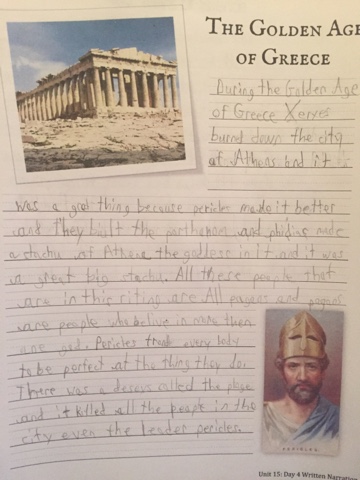 THE GOLDEN AGE
OF GREECE
During the Golden Age
of Greece Xerxes
burnd down the city
of Athens and it is
was a good thing because pericles made it better
and they built the parthanon and phidias made
a stachu of Athena the goddess in it and it was
a great big stachu. All these people that
are in this riting are All pagans and pagans
are people who belive in more then
one god. Pericles every body
to be perfect at the thing they do.
There was a deseys called the plage
and it killed all the people in the
city even the leader pericles.
PERICLES
Unit 15: Day 4 Written Narration